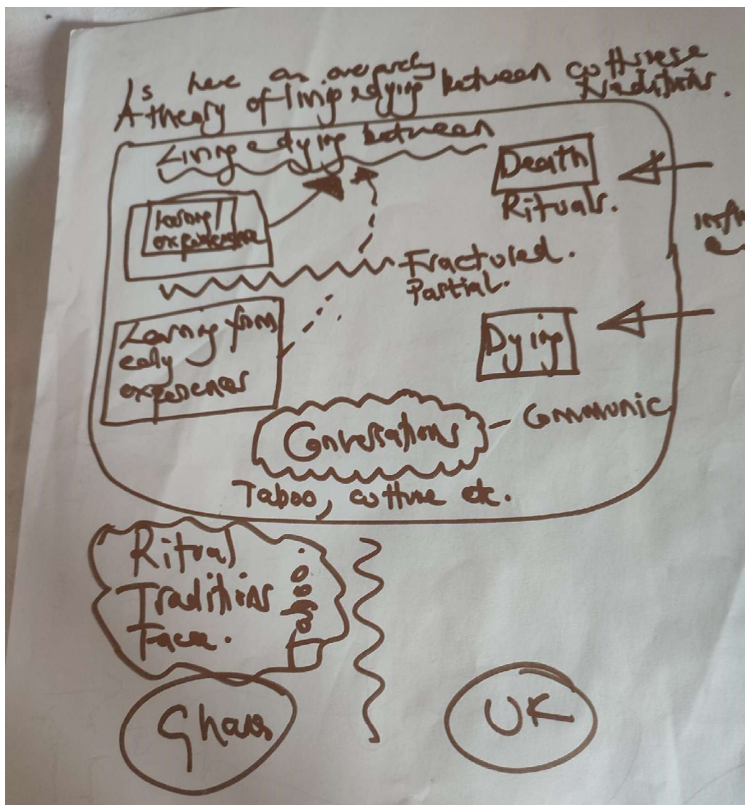 Is here an
A theory of living & dying between cultures &
traditions.
Living & dying between
Death
Rituals.
experience
Fractured.
Partial.
Learning from
early
experiences
Dying
Conversations - Communic
Taboo, culture etc.
Ritual
Traditions
Face.
Ghana
UK